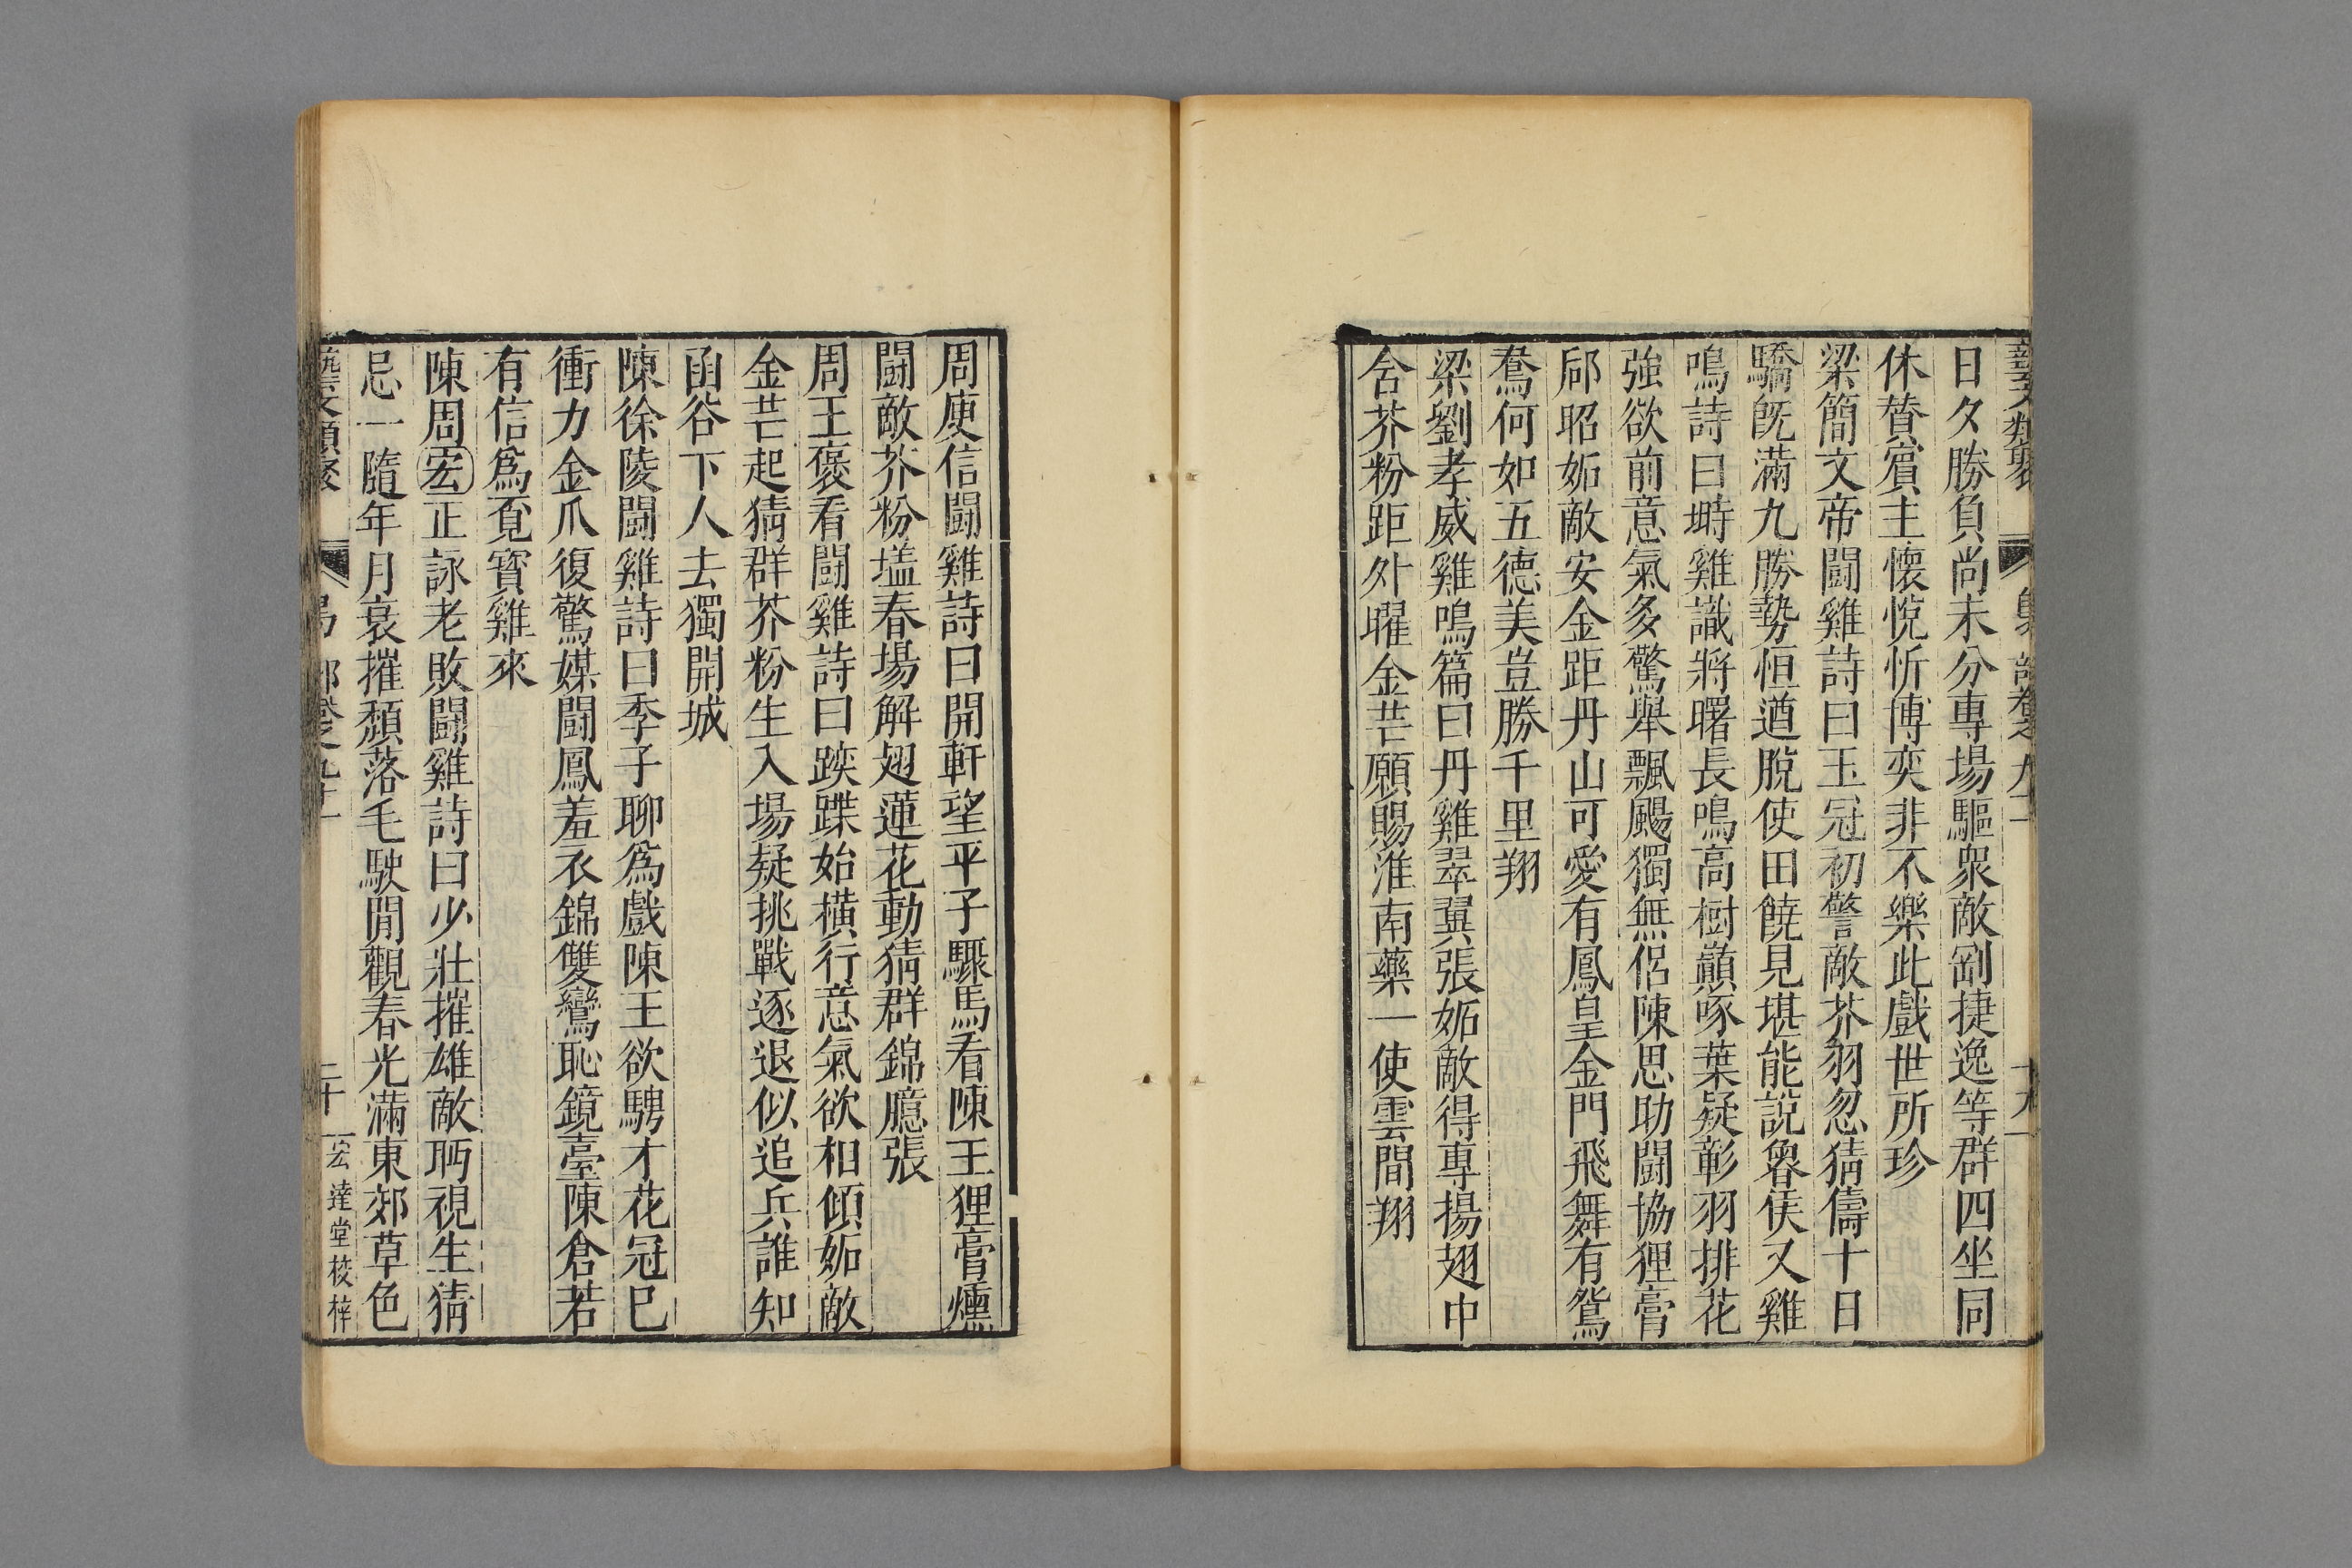 藝文類聚 鳥部卷之九十一 十九
日夕勝負尚未分專場驅衆敵剛捷逸等群四坐同
休贊賓主懷悅忻博奕非不樂此戲世所珍
梁簡文帝鬪雞詩曰玉冠初警敵芥羽忽猜儔十日
驕旣滿九勝勢恒遒脫使田饒見堪能說魯侯又雞
鳴詩曰塒雞識將曙長鳴高樹巔啄葉疑彰羽排花
強欲前意氣多驚舉飄颺獨無侶陳思助鬪協狸膏
郈昭妬敵安金距丹山可愛有鳳皇金門飛舞有鴛
鴦何如五德美豈勝千里翔
梁劉孝威雞鳴篇曰丹雞翠翼張妬敵得專揚翅中
含芥粉距外曜金芒願賜淮南藥一使雲間翔
周庾信鬪雞詩曰開軒望平子驟馬看陳王狸膏燻
鬪敵芥粉壒春場解翅蓮花動猜群錦臆張
周王褒看鬪雞詩曰踥蹀始橫行意氣欲相傾妬敵
金芒起猜群芥粉生入場疑挑戰逐退似追兵誰知
函谷下人去獨開城
陳徐陵鬪雞詩曰季子聊爲戲陳王欲騁才花冠已
衝力金爪復驚媒鬪鳳羞衣錦雙鸞恥鏡臺陳倉若
有信爲覓寶雞來
陳周宏正詠老敗鬪雞詩曰少壯摧雄敵眄視生猜
忌一隨年月衰摧頹落毛駛閒觀春光滿東郊草色
藝文類聚 鳥部卷之九十一 二十 宏達堂校梓